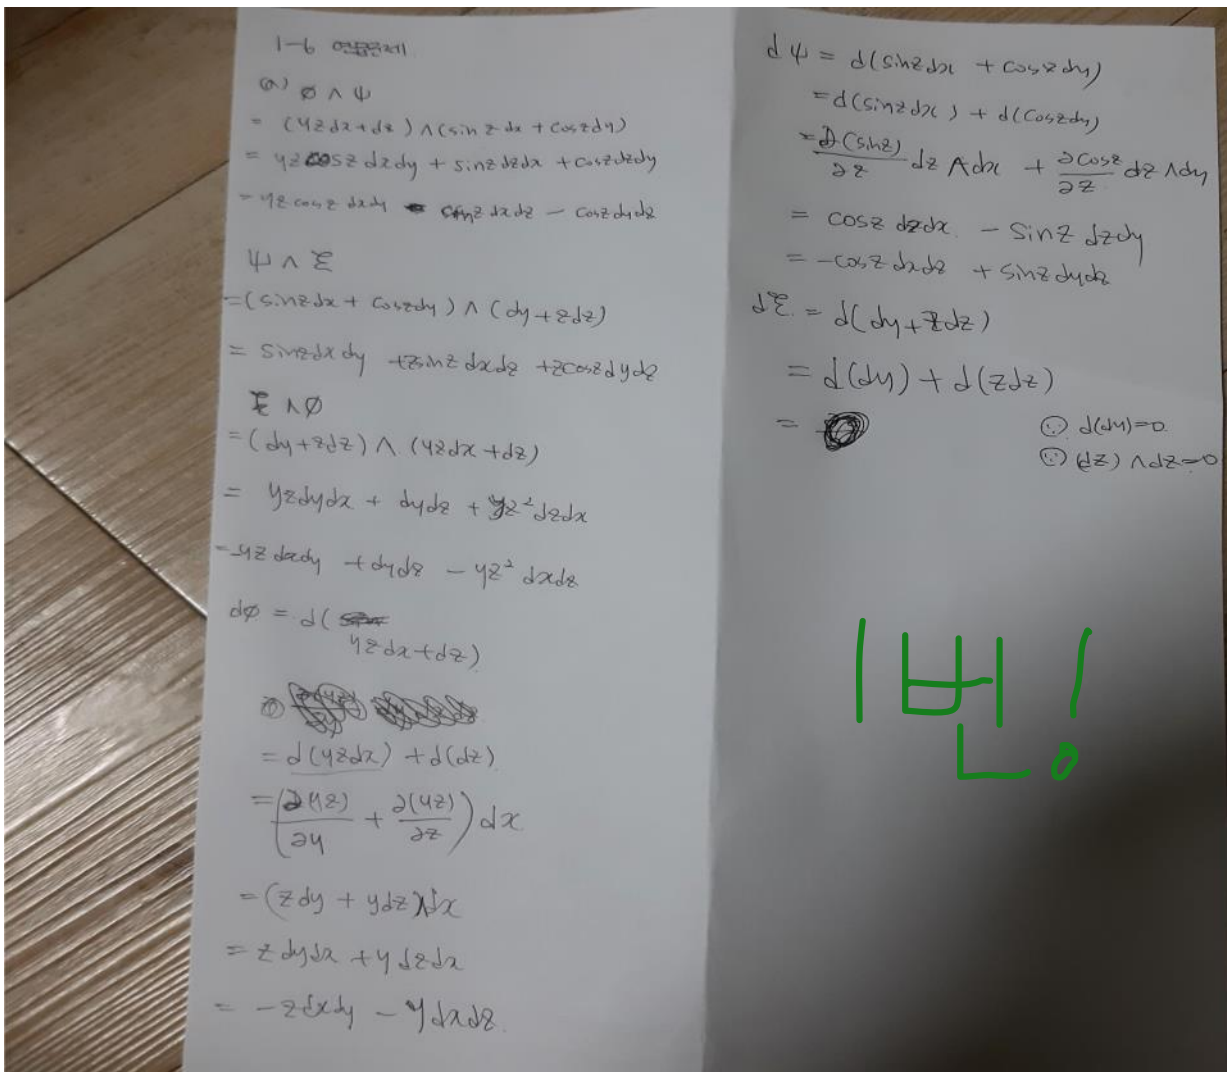 1-6 연습문제
(a) ø ∧ ψ
= (yzdx+dz) ∧ (sin z dx + coszdy)
= yz cosz dxdy + sinz dzdx + coszdzdy
= yz cosz dxdy - sinz dxdz - coszdydz
ψ ∧ ξ
= (sinzdx + coszdy) ∧ (dy+zdz)
= sinzdxdy + zsinz dxdz + zcoszdydz
ξ ∧ ø
= (dy+zdz) ∧ (yzdx+dz)
= yzdydx + dydz + yz² dzdx
= -yz dxdy + dydz - yz² dxdz
dø = d(
yzdx+dz)
= d(yzdx) + d(dz)
= (∂(yz)/∂y + ∂(yz)/∂z) dx
= (zdy + ydz)∧dx
= z dydx + y dzdx
= -zdxdy - ydxdz.
dψ = d(sinzdx + coszdy)
= d(sinzdx) + d(coszdy)
= ∂(sinz)/∂z dz ∧ dx + ∂cosz/∂z dz ∧ dy
= cosz dzdx - sinz dzdy
= -cosz dxdz + sinz dydz
dξ = d(dy+zdz)
= d(dy) + d(zdz)
= 0
∵ d(dy)=0.
∵ (dz) ∧ dz=0
1번!